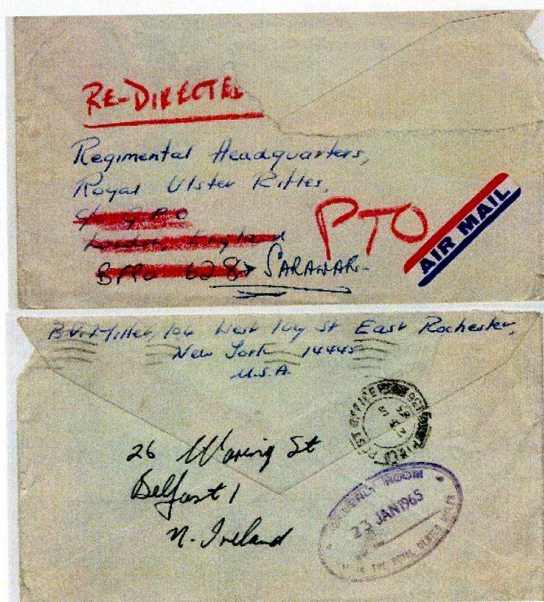 RE-DIRECTED
Regimental Headquarters,
Royal Ulster Rifles,
c/o GPO
London, England
BFPO 628 SARAWAK
PTO
AIR MAIL
B.V. Miller, 104 West Ivy St East Rochester,
New York 14445
U.S.A.
FIELD POST OFFICE
26 Waring St
Belfast 1
N. Ireland
ORDERLY ROOM
23 JAN 1965
THE ROYAL ULSTER RIFLES